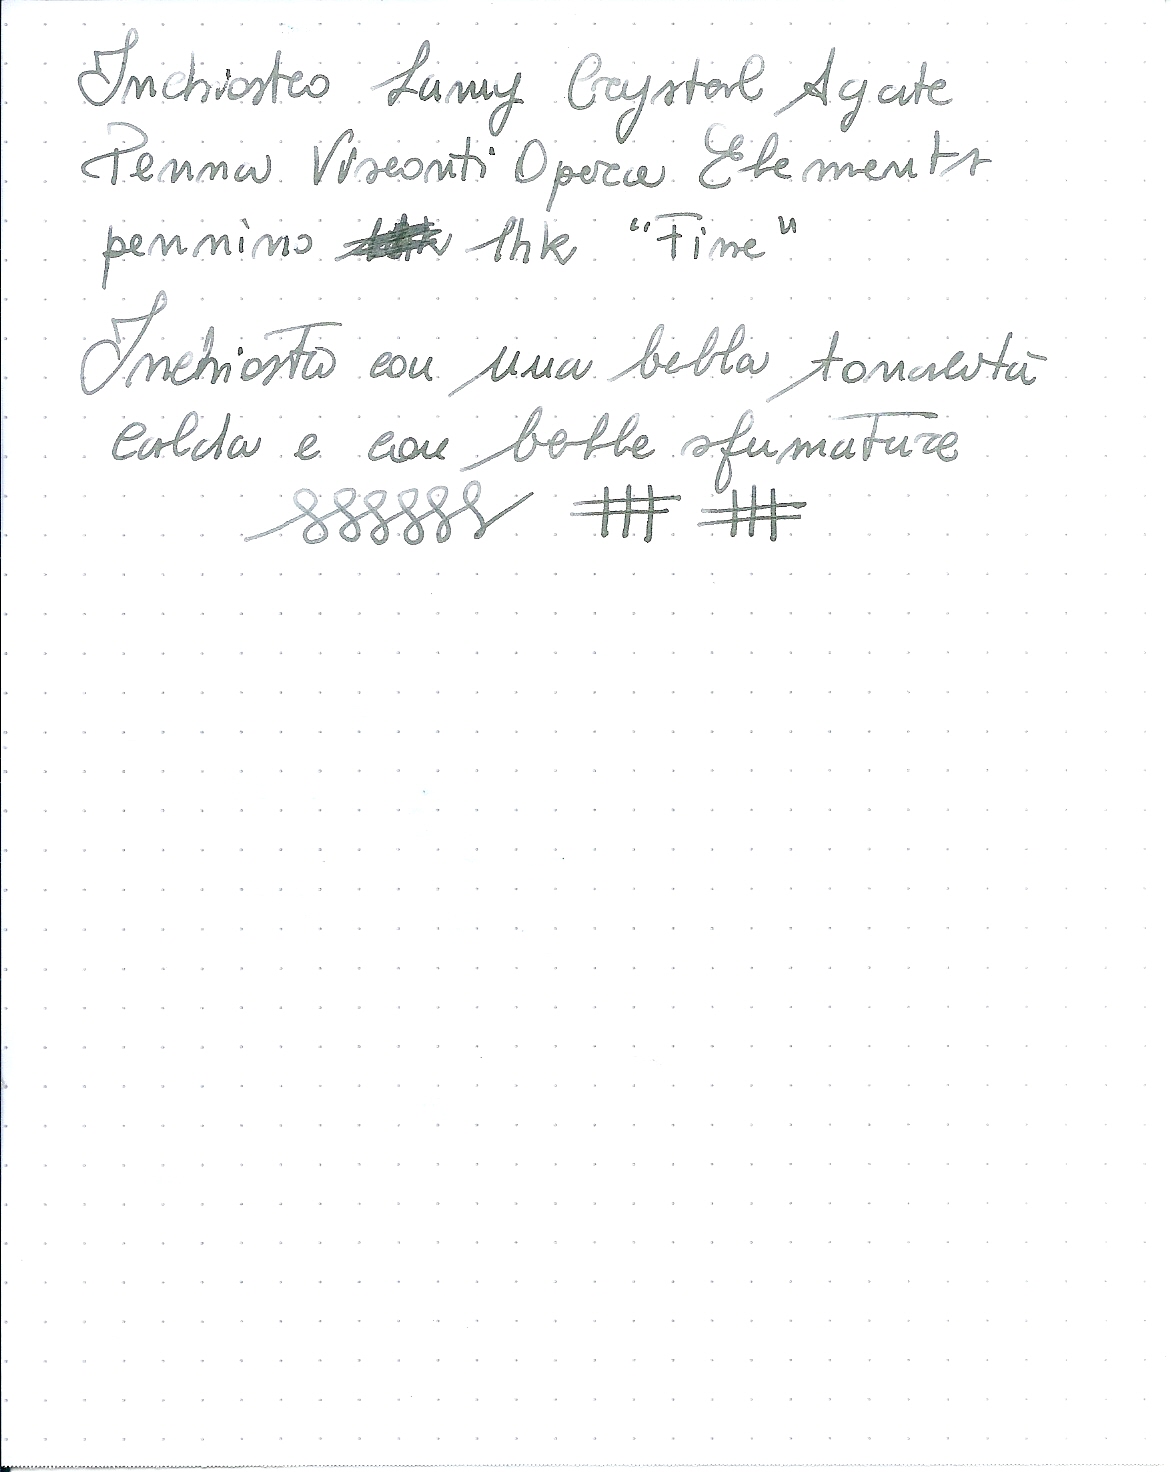 Inchiostro Lamy Crystal Agate
Penna Visconti Opera Elements
pennino 14k "Fine"
Inchiostro con una bella tonalità
calda e con belle sfumature